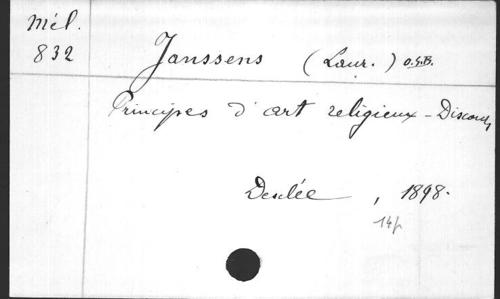 Mél.
832
Janssens (Laur.) O.S.B.
Principes d'art religieux - Discours
Desclée, 1898.
14p